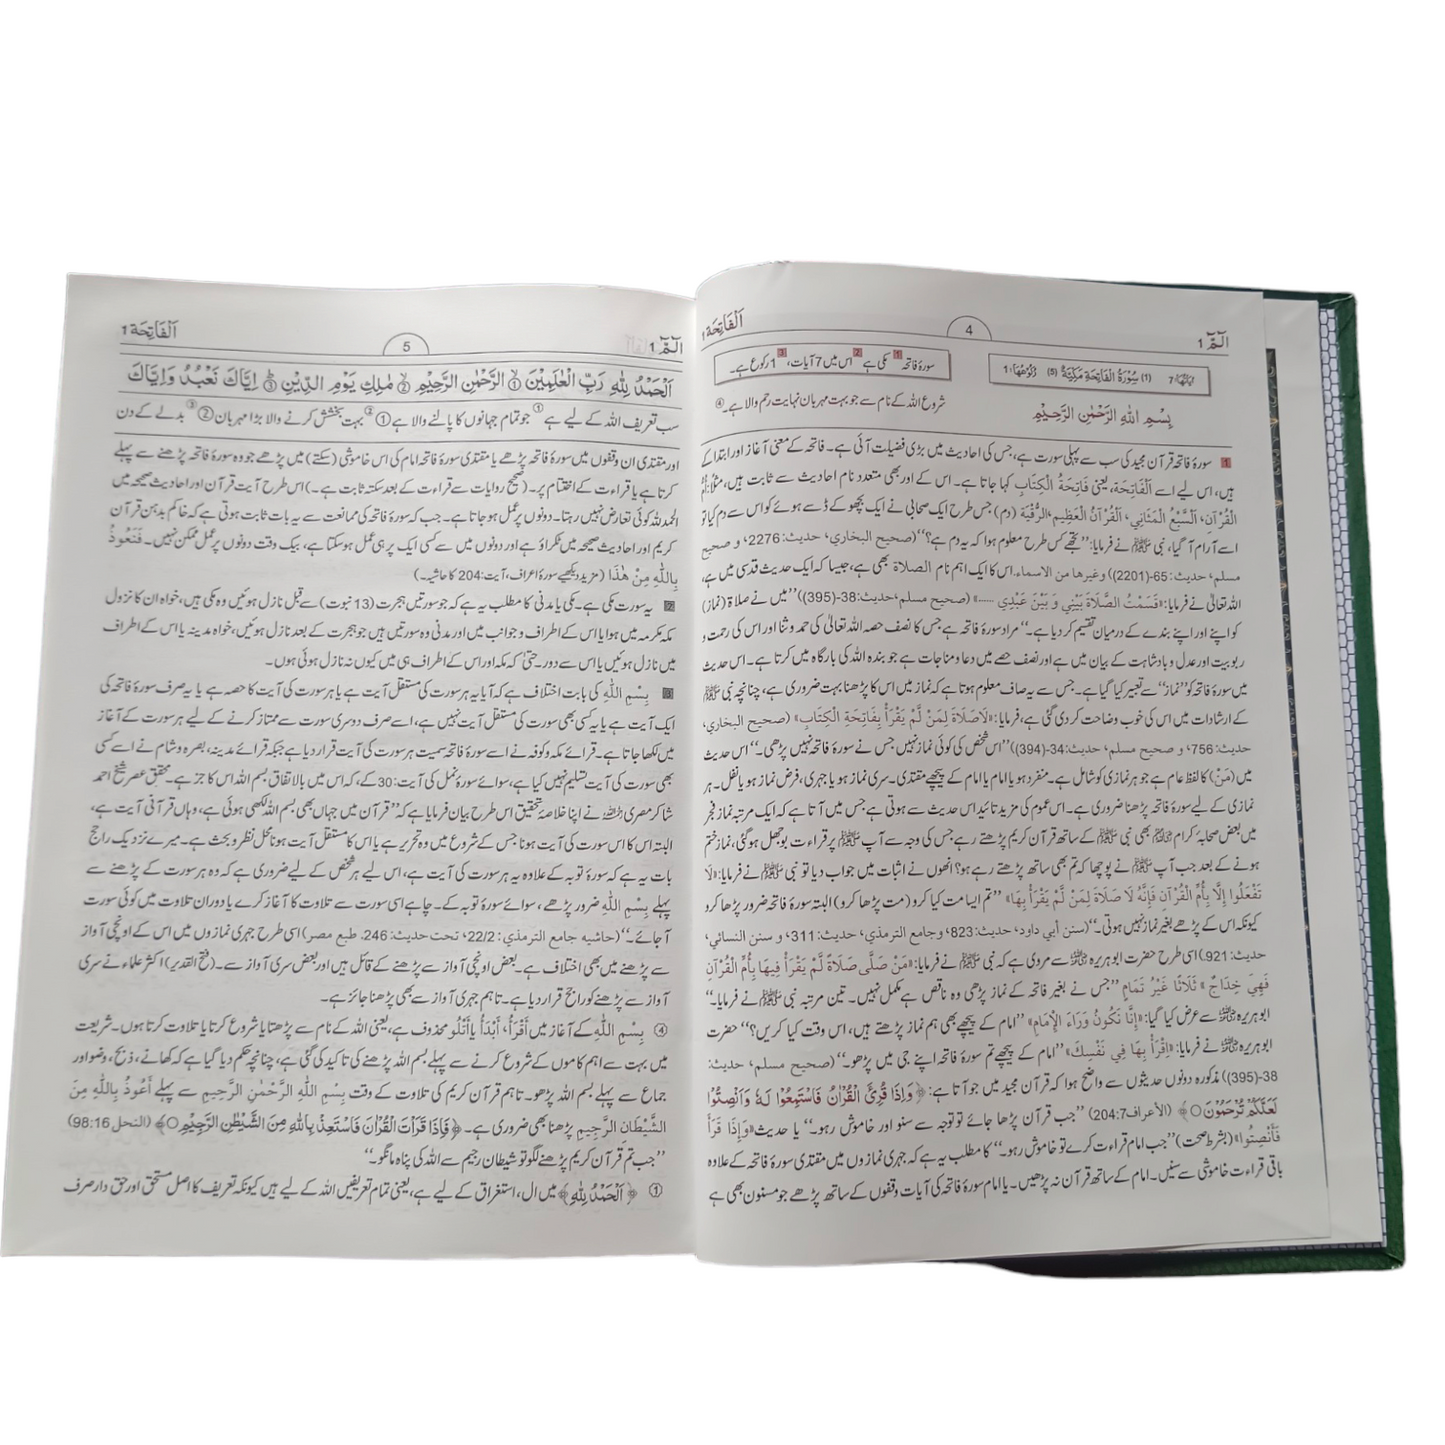 الٓمّٓ 1
4
اَلْفَاتِحَة 1
اٰيَاتُهَا: 7 (1) سُوْرَةُ الْفَاتِحَةِ مَكِّيَّةٌ (5) رُكُوْعُهَا: 1
سورۂ فاتحہ مکی ہے اس میں 7 آیات، 1 رکوع ہے۔
بِسْمِ اللّٰهِ الرَّحْمٰنِ الرَّحِيْمِ
شروع اللہ کے نام سے جو بہت مہربان نہایت رحم والا ہے۔ ④
1 سورۂ فاتحہ قرآن مجید کی سب سے پہلی سورت ہے، جس کی احادیث میں بڑی فضیلت آئی ہے۔ فاتحہ کے معنی آغاز اور ابتدا کے
ہیں، اس لیے اسے اَلْفَاتِحَة، یعنی فَاتِحَةُ الْكِتَابِ کہا جاتا ہے۔ اس کے اور بھی متعدد نام احادیث سے ثابت ہیں، مثلاً: أُمُّ
الْقُرْآنِ، اَلسَّبْعُ الْمَثَانِي، اَلْقُرْآنُ الْعَظِيم، اَلرُّقْيَة (دم) جس طرح ایک صحابی نے ایک بچھو کے ڈسے ہوئے کو اس سے دم کیا تو
اسے آرام آ گیا، نبی ﷺ نے فرمایا: ”تجھے کس طرح معلوم ہوا کہ یہ دم ہے؟“ (صحيح البخاري، حديث: 2276، و صحيح
مسلم، حديث: 65-(2201)) وغيرها من الاسماء. اس کا ایک اہم نام الصلاة بھی ہے، جیسا کہ ایک حدیث قدسی میں ہے،
اللہ تعالیٰ نے فرمایا: «قَسَمْتُ الصَّلَاةَ بَيْنِي وَ بَيْنَ عَبْدِي ......» (صحيح مسلم، حديث: 38-(395)) ”میں نے صلاۃ (نماز)
کو اپنے اور اپنے بندے کے درمیان تقسیم کر دیا ہے۔“ مراد سورۂ فاتحہ ہے جس کا نصف حصہ اللہ تعالیٰ کی حمد و ثنا اور اس کی رحمت و
ربوبیت اور عدل و بادشاہت کے بیان میں ہے اور نصف حصے میں دعا و مناجات ہے جو بندہ اللہ کی بارگاہ میں کرتا ہے۔ اس حدیث
میں سورۂ فاتحہ کو ”نماز“ سے تعبیر کیا گیا ہے۔ جس سے یہ صاف معلوم ہوتا ہے کہ نماز میں اس کا پڑھنا بہت ضروری ہے، چنانچہ نبی ﷺ
کے ارشادات میں اس کی خوب وضاحت کر دی گئی ہے، فرمایا: «لَاصَلَاةَ لِمَنْ لَّمْ يَقْرَأْ بِفَاتِحَةِ الْكِتَابِ» (صحيح البخاري،
حديث: 756، و صحيح مسلم، حديث: 34-(394)) ”اس شخص کی کوئی نماز نہیں جس نے سورۂ فاتحہ نہیں پڑھی۔“ اس حدیث
میں (مَنْ) کا لفظ عام ہے جو ہر نمازی کو شامل ہے۔ منفرد ہو یا امام یا امام کے پیچھے مقتدی۔ سری نماز ہو یا جہری، فرض نماز ہو یا نفل۔ ہر
نمازی کے لیے سورۂ فاتحہ پڑھنا ضروری ہے۔ اس عموم کی مزید تائید اس حدیث سے ہوتی ہے جس میں آتا ہے کہ ایک مرتبہ نماز فجر
میں بعض صحابۂ کرام بھی نبی ﷺ کے ساتھ قرآن کریم پڑھتے رہے جس کی وجہ سے آپ ﷺ پر قراءت بوجھل ہو گئی، نماز ختم
ہونے کے بعد جب آپ ﷺ نے پوچھا کہ تم بھی ساتھ پڑھتے رہے ہو؟ انھوں نے اثبات میں جواب دیا تو نبی ﷺ نے فرمایا: «لَا
تَفْعَلُوا إِلَّا بِأُمِّ الْقُرْآنِ فَإِنَّهُ لَا صَلَاةَ لِمَنْ لَّمْ يَقْرَأْ بِهَا» ”تم ایسا مت کیا کرو (مت پڑھا کرو) البتہ سورۂ فاتحہ ضرور پڑھا کرو
کیونکہ اس کے پڑھے بغیر نماز نہیں ہوتی۔“ (سنن أبي داود، حديث: 823، وجامع الترمذي، حديث: 311، و سنن النسائي،
حديث: 921) اسی طرح حضرت ابوہریرہ سے مروی ہے کہ نبی ﷺ نے فرمایا: «مَنْ صَلَّى صَلَاةً لَّمْ يَقْرَأْ فِيهَا بِأُمِّ الْقُرْآنِ
فَهِيَ خِدَاجٌ» ثَلَاثًا غَيْرُ تَمَامٍ ”جس نے بغیر فاتحہ کے نماز پڑھی وہ ناقص ہے مکمل نہیں۔ تین مرتبہ نبی ﷺ نے فرمایا۔“
ابوہریرہ سے عرض کیا گیا: «إِنَّا نَكُونُ وَرَاءَ الْإِمَامِ» ”امام کے پیچھے بھی ہم نماز پڑھتے ہیں، اس وقت کیا کریں؟“ حضرت
ابوہریرہ نے فرمایا: «اِقْرَأْ بِهَا فِي نَفْسِكَ» ”امام کے پیچھے تم سورۂ فاتحہ اپنے جی میں پڑھو۔“ (صحيح مسلم، حديث:
38-(395)) مذکورہ دونوں حدیثوں سے واضح ہوا کہ قرآن مجید میں جو آتا ہے: ﴿وَاِذَا قُرِئَ الْقُرْاٰنُ فَاسْتَمِعُوْا لَهٗ وَاَنْصِتُوْا
لَعَلَّكُمْ تُرْحَمُوْنَ﴾ (الأعراف 204:7) ”جب قرآن پڑھا جائے تو توجہ سے سنو اور خاموش رہو۔“ یا حدیث «وَإِذَا قَرَأَ
فَأَنْصِتُوا» (بشرط صحت) ”جب امام قراءت کرے تو خاموش رہو۔“ کا مطلب یہ ہے کہ جہری نمازوں میں مقتدی سورۂ فاتحہ کے علاوہ
باقی قراءت خاموشی سے سنیں۔ امام کے ساتھ قرآن نہ پڑھیں۔ یا امام سورۂ فاتحہ کی آیات وقفوں کے ساتھ پڑھے جو مسنون بھی ہے
الٓمّٓ 1
5
اَلْفَاتِحَة 1
اَلْحَمْدُ لِلّٰهِ رَبِّ الْعٰلَمِيْنَ ① الرَّحْمٰنِ الرَّحِيْمِ ② مٰلِكِ يَوْمِ الدِّيْنِ ③ اِيَّاكَ نَعْبُدُ وَاِيَّاكَ
سب تعریف اللہ کے لیے ہے ① جو تمام جہانوں کا پالنے والا ہے ① بہت بخشش کرنے والا بڑا مہربان ② بدلے کے دن
اور مقتدی ان وقفوں میں سورۂ فاتحہ پڑھے یا مقتدی سورۂ فاتحہ امام کی اس خاموشی (سکتے) میں پڑھے جو وہ سورۂ فاتحہ پڑھنے سے پہلے
کرتا ہے یا قراءت کے اختتام پر۔ (صحیح روایات سے قراءت کے بعد سکتہ ثابت ہے۔) اس طرح آیت قرآن اور احادیث صحیحہ میں
الحمد للہ کوئی تعارض نہیں رہتا۔ دونوں پر عمل ہو جاتا ہے۔ جب کہ سورۂ فاتحہ کی ممانعت سے یہ بات ثابت ہوتی ہے کہ خاکم بدہن قرآن
کریم اور احادیث صحیحہ میں ٹکراؤ ہے اور دونوں میں سے کسی ایک پر ہی عمل ہو سکتا ہے، بیک وقت دونوں پر عمل ممکن نہیں۔ فَنَعُوذُ
بِاللّٰهِ مِنْ هٰذَا (مزید دیکھیے سورۂ اعراف، آیت: 204 کا حاشیہ۔)
2 یہ سورت مکی ہے۔ مکی یا مدنی کا مطلب یہ ہے کہ جو سورتیں ہجرت (13 نبوت) سے قبل نازل ہوئیں وہ مکی ہیں، خواہ ان کا نزول
مکہ مکرمہ میں ہوا یا اس کے اطراف و جوانب میں اور مدنی وہ سورتیں ہیں جو ہجرت کے بعد نازل ہوئیں، خواہ مدینہ یا اس کے اطراف
میں نازل ہوئیں یا اس سے دور۔ حتیٰ کہ مکہ اور اس کے اطراف ہی میں کیوں نہ نازل ہوئی ہوں۔
3 بِسْمِ اللّٰهِ کی بابت اختلاف ہے کہ آیا یہ ہر سورت کی مستقل آیت ہے یا ہر سورت کی آیت کا حصہ ہے یا یہ صرف سورۂ فاتحہ کی
ایک آیت ہے یا یہ کسی بھی سورت کی مستقل آیت نہیں ہے، اسے صرف دوسری سورت سے ممتاز کرنے کے لیے ہر سورت کے آغاز
میں لکھا جاتا ہے۔ قرائے مکہ و کوفہ نے اسے سورۂ فاتحہ سمیت ہر سورت کی آیت قرار دیا ہے جبکہ قرائے مدینہ، بصرہ و شام نے اسے کسی
بھی سورت کی آیت تسلیم نہیں کیا ہے، سوائے سورۂ نمل کی آیت: 30 کے، کہ اس میں بالاتفاق بسم اللہ اس کا جز ہے۔ محقق عصر شیخ احمد
شاکر مصری نے اپنا خلاصۂ تحقیق اس طرح بیان فرمایا ہے کہ ”قرآن میں جہاں بھی بسم اللہ لکھی ہوئی ہے، وہاں قرآنی آیت ہے،
البتہ اس کا اس سورت کی آیت ہونا جس کے شروع میں وہ تحریر ہے یا اس کا مستقل آیت ہونا محل نظر و بحث ہے۔ میرے نزدیک راجح
بات یہ ہے کہ سورۂ توبہ کے علاوہ یہ ہر سورت کی آیت ہے، اس لیے ہر شخص کے لیے ضروری ہے کہ وہ ہر سورت کے پڑھنے سے
پہلے بِسْمِ اللّٰهِ ضرور پڑھے، سوائے سورۂ توبہ کے۔ چاہے اسی سورت سے تلاوت کا آغاز کرے یا دوران تلاوت میں کوئی سورت
آ جائے۔“ (حاشيه جامع الترمذي: 22/2، تحت حديث: 246. طبع مصر) اسی طرح جہری نمازوں میں اس کے اونچی آواز
سے پڑھنے میں بھی اختلاف ہے۔ بعض اونچی آواز سے پڑھنے کے قائل ہیں اور بعض سری آواز سے۔ (فتح القدیر) اکثر علماء نے سری
آواز سے پڑھنے کو راجح قرار دیا ہے۔ تاہم جہری آواز سے بھی پڑھنا جائز ہے۔
④ بِسْمِ اللّٰهِ کے آغاز میں أَقْرَأُ، أَبْدَأُ یا أَتْلُو محذوف ہے، یعنی اللہ کے نام سے پڑھتا یا شروع کرتا یا تلاوت کرتا ہوں۔ شریعت
میں بہت سے اہم کاموں کے شروع کرنے سے پہلے بسم اللہ پڑھنے کی تاکید کی گئی ہے، چنانچہ حکم دیا گیا ہے کہ کھانے، ذبح، وضو اور
جماع سے پہلے بسم اللہ پڑھو۔ تاہم قرآن کریم کی تلاوت کے وقت بِسْمِ اللّٰهِ الرَّحْمٰنِ الرَّحِيمِ سے پہلے أَعُوذُ بِاللّٰهِ مِنَ
الشَّيْطَانِ الرَّجِيمِ پڑھنا بھی ضروری ہے۔ ﴿فَاِذَا قَرَاْتَ الْقُرْاٰنَ فَاسْتَعِذْ بِاللّٰهِ مِنَ الشَّيْطٰنِ الرَّجِيْمِ﴾ (النحل 98:16)
”جب تم قرآن کریم پڑھنے لگو تو شیطان رجیم سے اللہ کی پناہ مانگو۔“
① ﴿اَلْحَمْدُ لِلّٰهِ﴾ میں ال، استغراق کے لیے ہے، یعنی تمام تعریفیں اللہ کے لیے ہیں کیونکہ تعریف کا اصل مستحق اور حق دار صرف